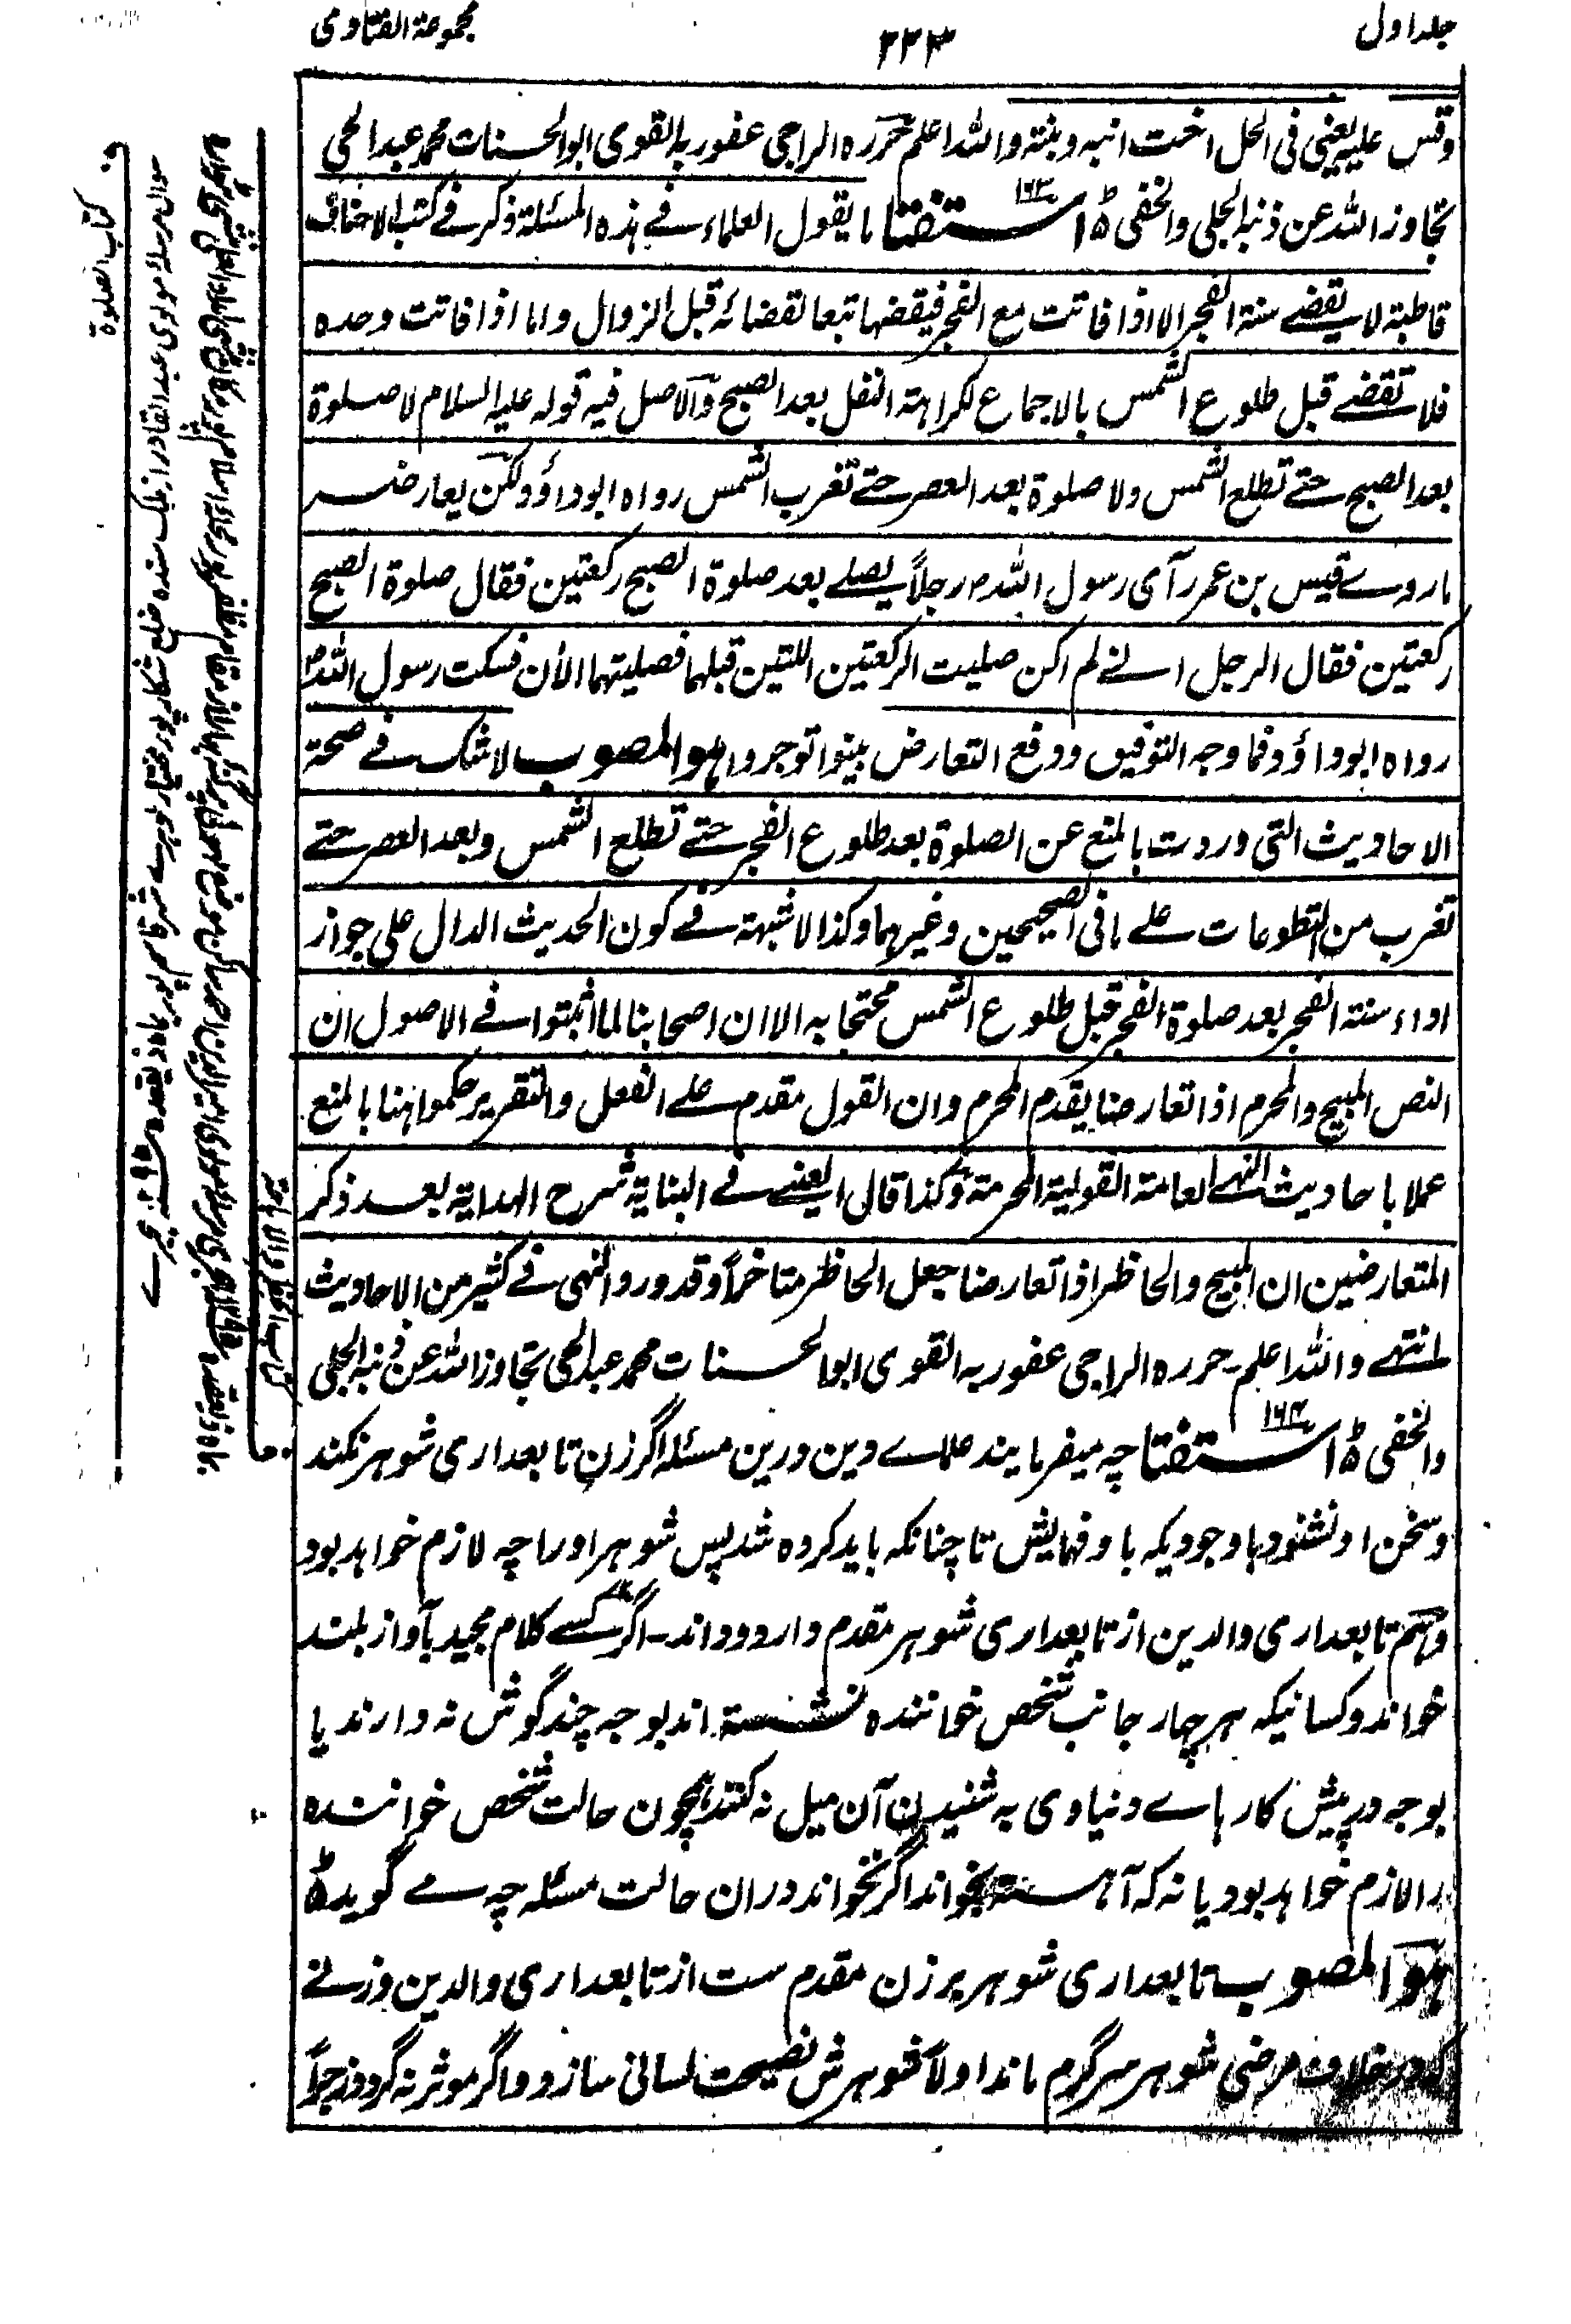 جلد اول
۲۲۳
مجموعة الفتاوى
وقس عليه يعنى فى الحل اخت ابنه وبنته والله اعلم حرره الراجى عفو ربه القوى ابو الحسنات محمد عبد الحى
تجاوز الله عن ذنبه الجلى والخفى استفتا ۱۶۳ ما يقول العلماء فے هذه المسئلة ذكر فے كتب الاحناف
قاطبة لا يقضے سنة الفجر الا اذا فاتت مع الفجر فيقضها تبعا لقضائه قبل الزوال واما اذا فاتت وحده
فلا تقضے قبل طلوع الشمس بالاجماع لكراهته النفل بعد الصبح والاصل فيه قوله عليه السلام لا صلوة
بعد الصبح حتے تطلع الشمس ولا صلوة بعد العصر حتے تغرب الشمس رواه ابو داؤد ولكن يعارضه
ما روے قيس بن عمر رآى رسول الله م رجلاً يصلے بعد صلوة الصبح ركعتين فقال صلوة الصبح
ركعتين فقال الرجل انے لم اكن صليت الركعتين اللتين قبلهما فصليتهما الأن فسكت رسول الله م
رواه ابو داؤد فما وجه التوفيق ودفع التعارض بينوا توجروا هو المصوب لا شك فے صحة
الاحاديث التى وردت بالمنع عن الصلوة بعد طلوع الفجر حتے تطلع الشمس وبعد العصر حتے
تغرب من التطوعات علے ما فى الصحيحين وغيرهما وكذا لا شبهة فے كون الحديث الدال على جواز
اداء سنة الفجر بعد صلوة الفجر قبل طلوع الشمس محتجا به الا ان اصحابنا لما اثبتوا فے الاصول ان
النص المبيح والمحرم اذا تعارضا يقدم المحرم وان القول مقدم علے الفعل والتقرير حكموا ههنا بالمنع
عملا باحاديث النهے العامة القولية المحرمة وكذا قال العينے فے البناية شرح الهداية بعد ذكر
المتعارضين ان المبيح والحاظر اذا تعارضا جعل الحاظر متاخراً وقد ورد النهى فے كثير من الاحاديث
انتهے والله اعلم ـ حرره الراجى عفو ربه القوى ابو الحسنات محمد عبد الحى تجاوز الله عن ذنبه الجلى
والخفى استفتا ۱۶۴ چه ميفرمايند علماے دين درين مسئله اگر زن تابعدارى شوهر نكند
وسخن او نشنود باوجوديكه باو فهمايش تا چنانكه بايد كرده شد پس شوهر او را چه لازم خواهد بود
وهم تابعدارى والدين از تابعدارى شوهر مقدم دارد و داند ـ اگر كسے كلام مجيد بآواز بلند
خواند وكسانيكه هر چهار جانب شخص خواننده نشسته اند بوجه چند گوش نه دارند يا
بوجه در پيش كارهاے دنياوى به شنيدن آن ميل نه كنند همچون حالت شخص خواننده
را لازم خواهد بود يا نه كه آهسته بخواند اگر نخواند دران حالت مسئله چه مے گويد
هو المصوب تابعدارى شوهر بر زن مقدم ست از تابعدارى والدين وزنے
كه در خلاف مرضى شوهر سرگرم ماند اولاً شوهرش نصيحت لسانى سازد و اگر موثر نه گردد زجراً
كتاب الصلوة
سوال مرسلهٔ مولوى عبد القادر از ملك سنده ضلع شكارپور